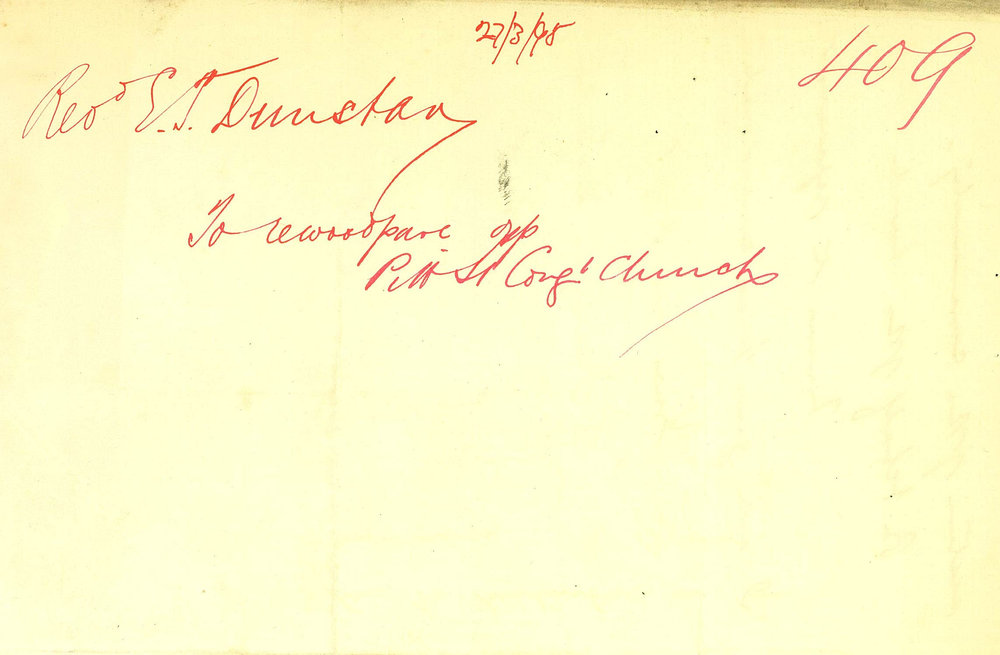 27/3/98
409
Revd E.T. Dunstan
To rewoodpave opp
Pitt St Congl Church